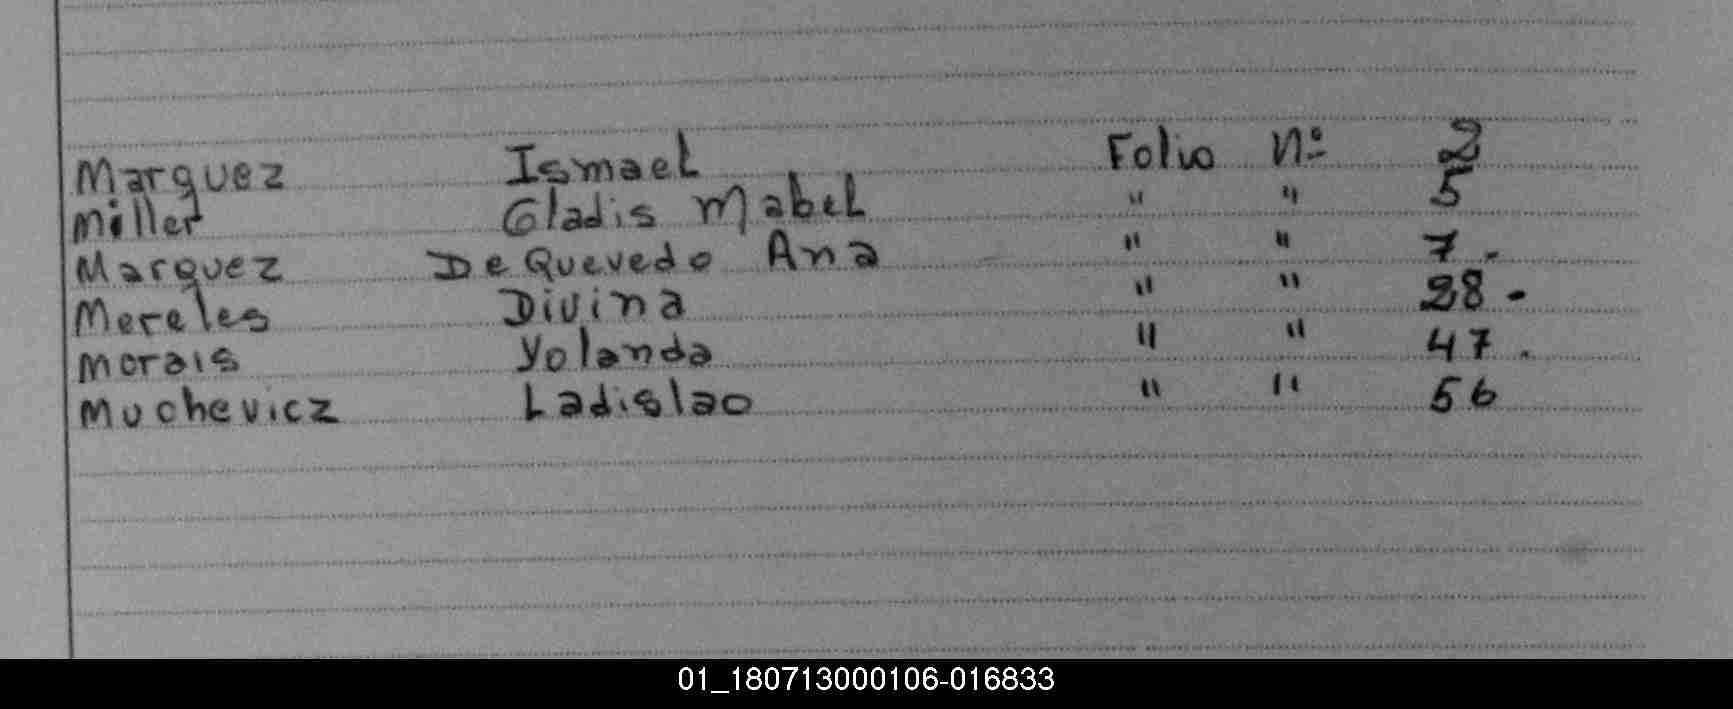 Marquez Ismael Folio Nº 2
Miller Gladis Mabel " " 5
Marquez De Quevedo Ana " " 7.
Mereles Divina " " 28-
Morais Yolanda " " 47.
Muchevicz Ladislao " " 56
01_180713000106-016833